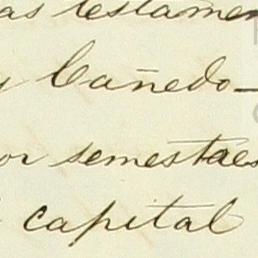 as testamen
y Cañedo-
or semestres
capital